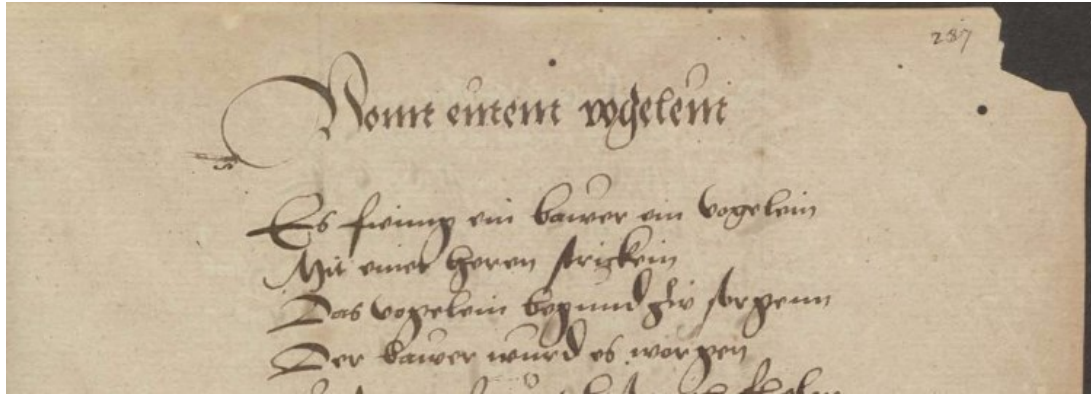 287
Vonn einem vogelein
Es fieng ein bawer ein vogelein
Mit einer heren strickein
Das vogelein begund zw sorgenn
Der bawer wurd es worgen